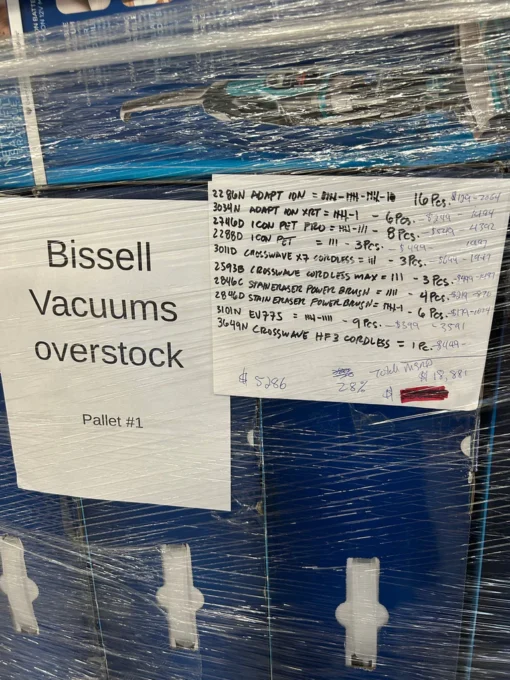 Bissell
Vacuums
overstock
Pallet #1
2286N ADAPT ION = 16 Pcs.
3034N ADAPT ION XRT = - 6 Pcs. - $299
2746D ICON PET PRO = - 8 Pcs.
2288D ICON PET = III - 3 Pcs. - $499
3011D CROSSWAVE X7 CORDLESS = III - 3 Pcs.
2593B CROSSWAVE CORDLESS MAX = III - 3 Pcs.
2846C STAIN ERASER POWER BRUSH = IIII - 4 Pcs.
2846D STAIN ERASER POWER BRUSH = - 6 Pcs.
3101N EV775 = - 9 Pcs. - $399 - 3591
3649N CROSSWAVE HF3 CORDLESS = 1 Pc. - $449 -
Total
$ 18,881
$ 5286
28%
$